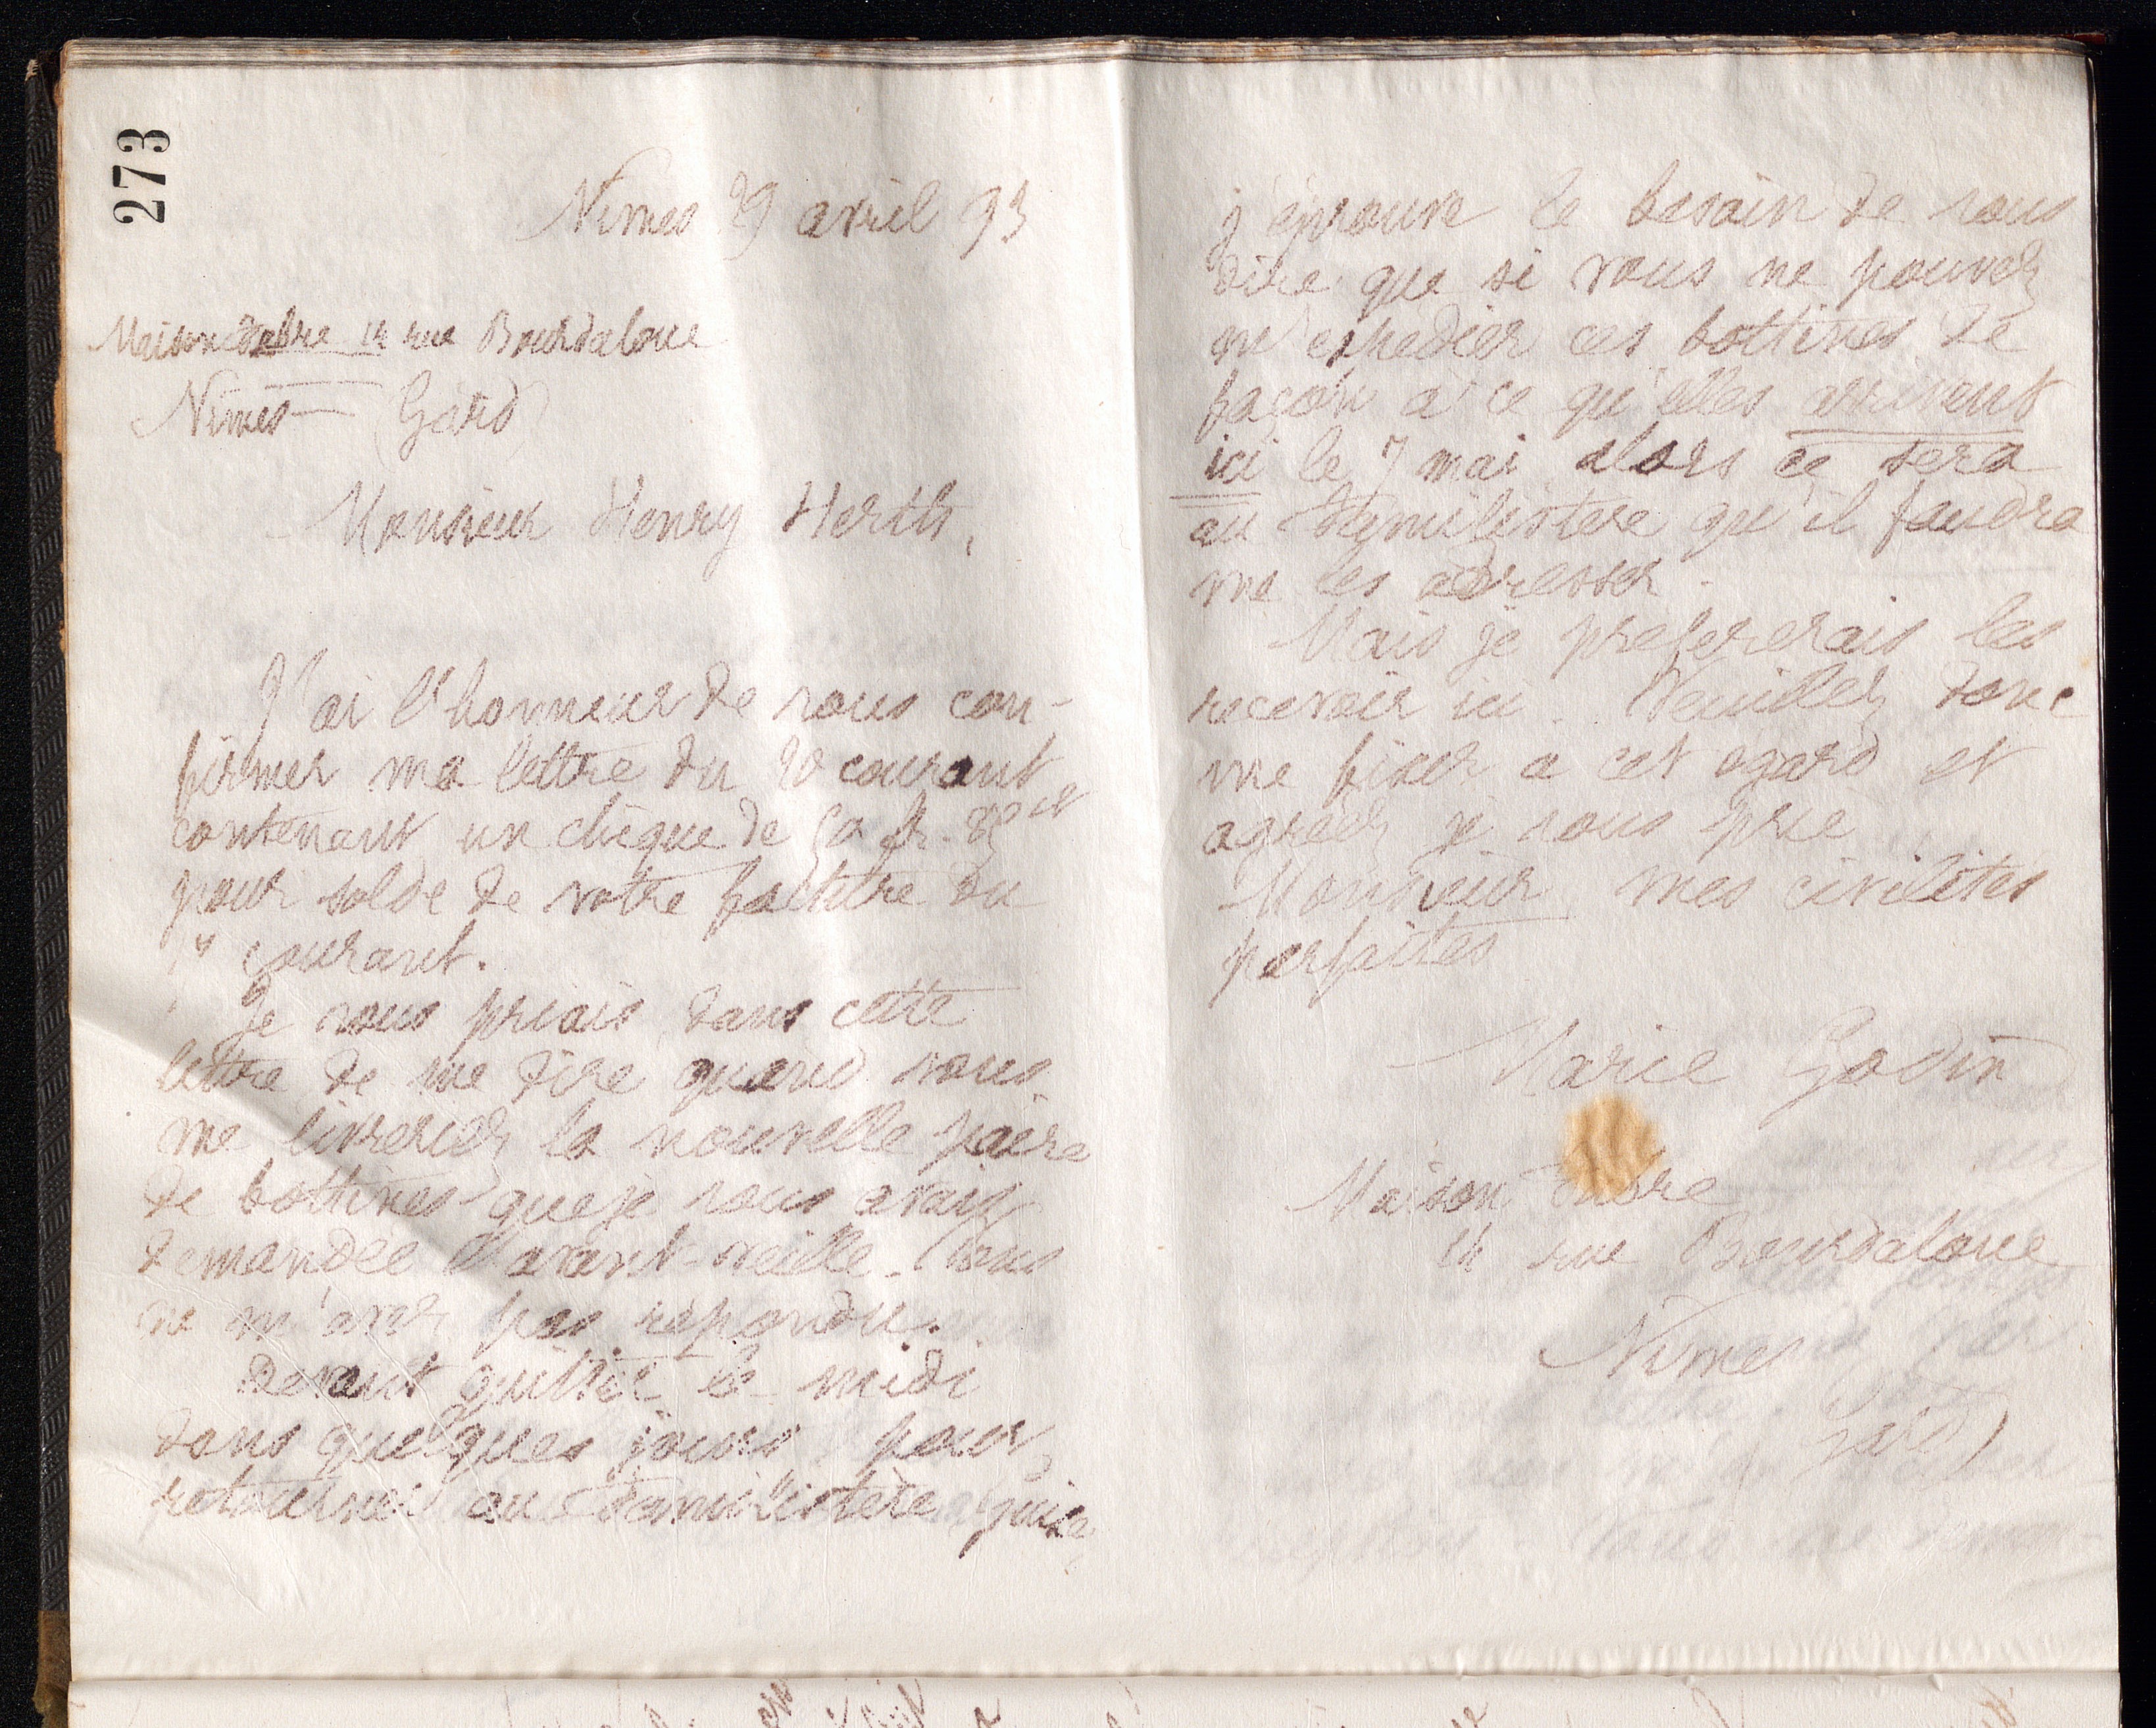 273
Nimes 29 avril 93
Maison Fabre 14 rue Bourdaloue
Nimes Gard
Monsieur Henry Herth,
J'ai l'honneur de vous con-
firmer ma lettre du 20 courant
contenant un chèque de 50 fr. 85 ct
pour solde de votre facture du
courant.
Je vous priais dans cette
lettre de me dire quand vous
me livreriez la nouvelle paire
de bottines que je vous avais
demandée l'avant-veille. Vous
ne m'avez pas répondu.
Devant quitter le midi
dans quelques jours pour
retourner au Familistère Guise,
j'éprouve le besoin de vous
dire que si vous ne pouvez
m'expedier ces bottines de
façon à ce qu'elles arrivent
ici le 7 mai, alors ce sera
au Familistere qu'il faudra
me les adresser.
Mais je prefererais les
recevoir ici. Veuillez donc
me fixer a cet égard et
agréez je vous prie
Monsieur mes civilités
parfaites
Marie Godin
Maison Fabre
14 rue Bourdaloue
Nimes
Gard